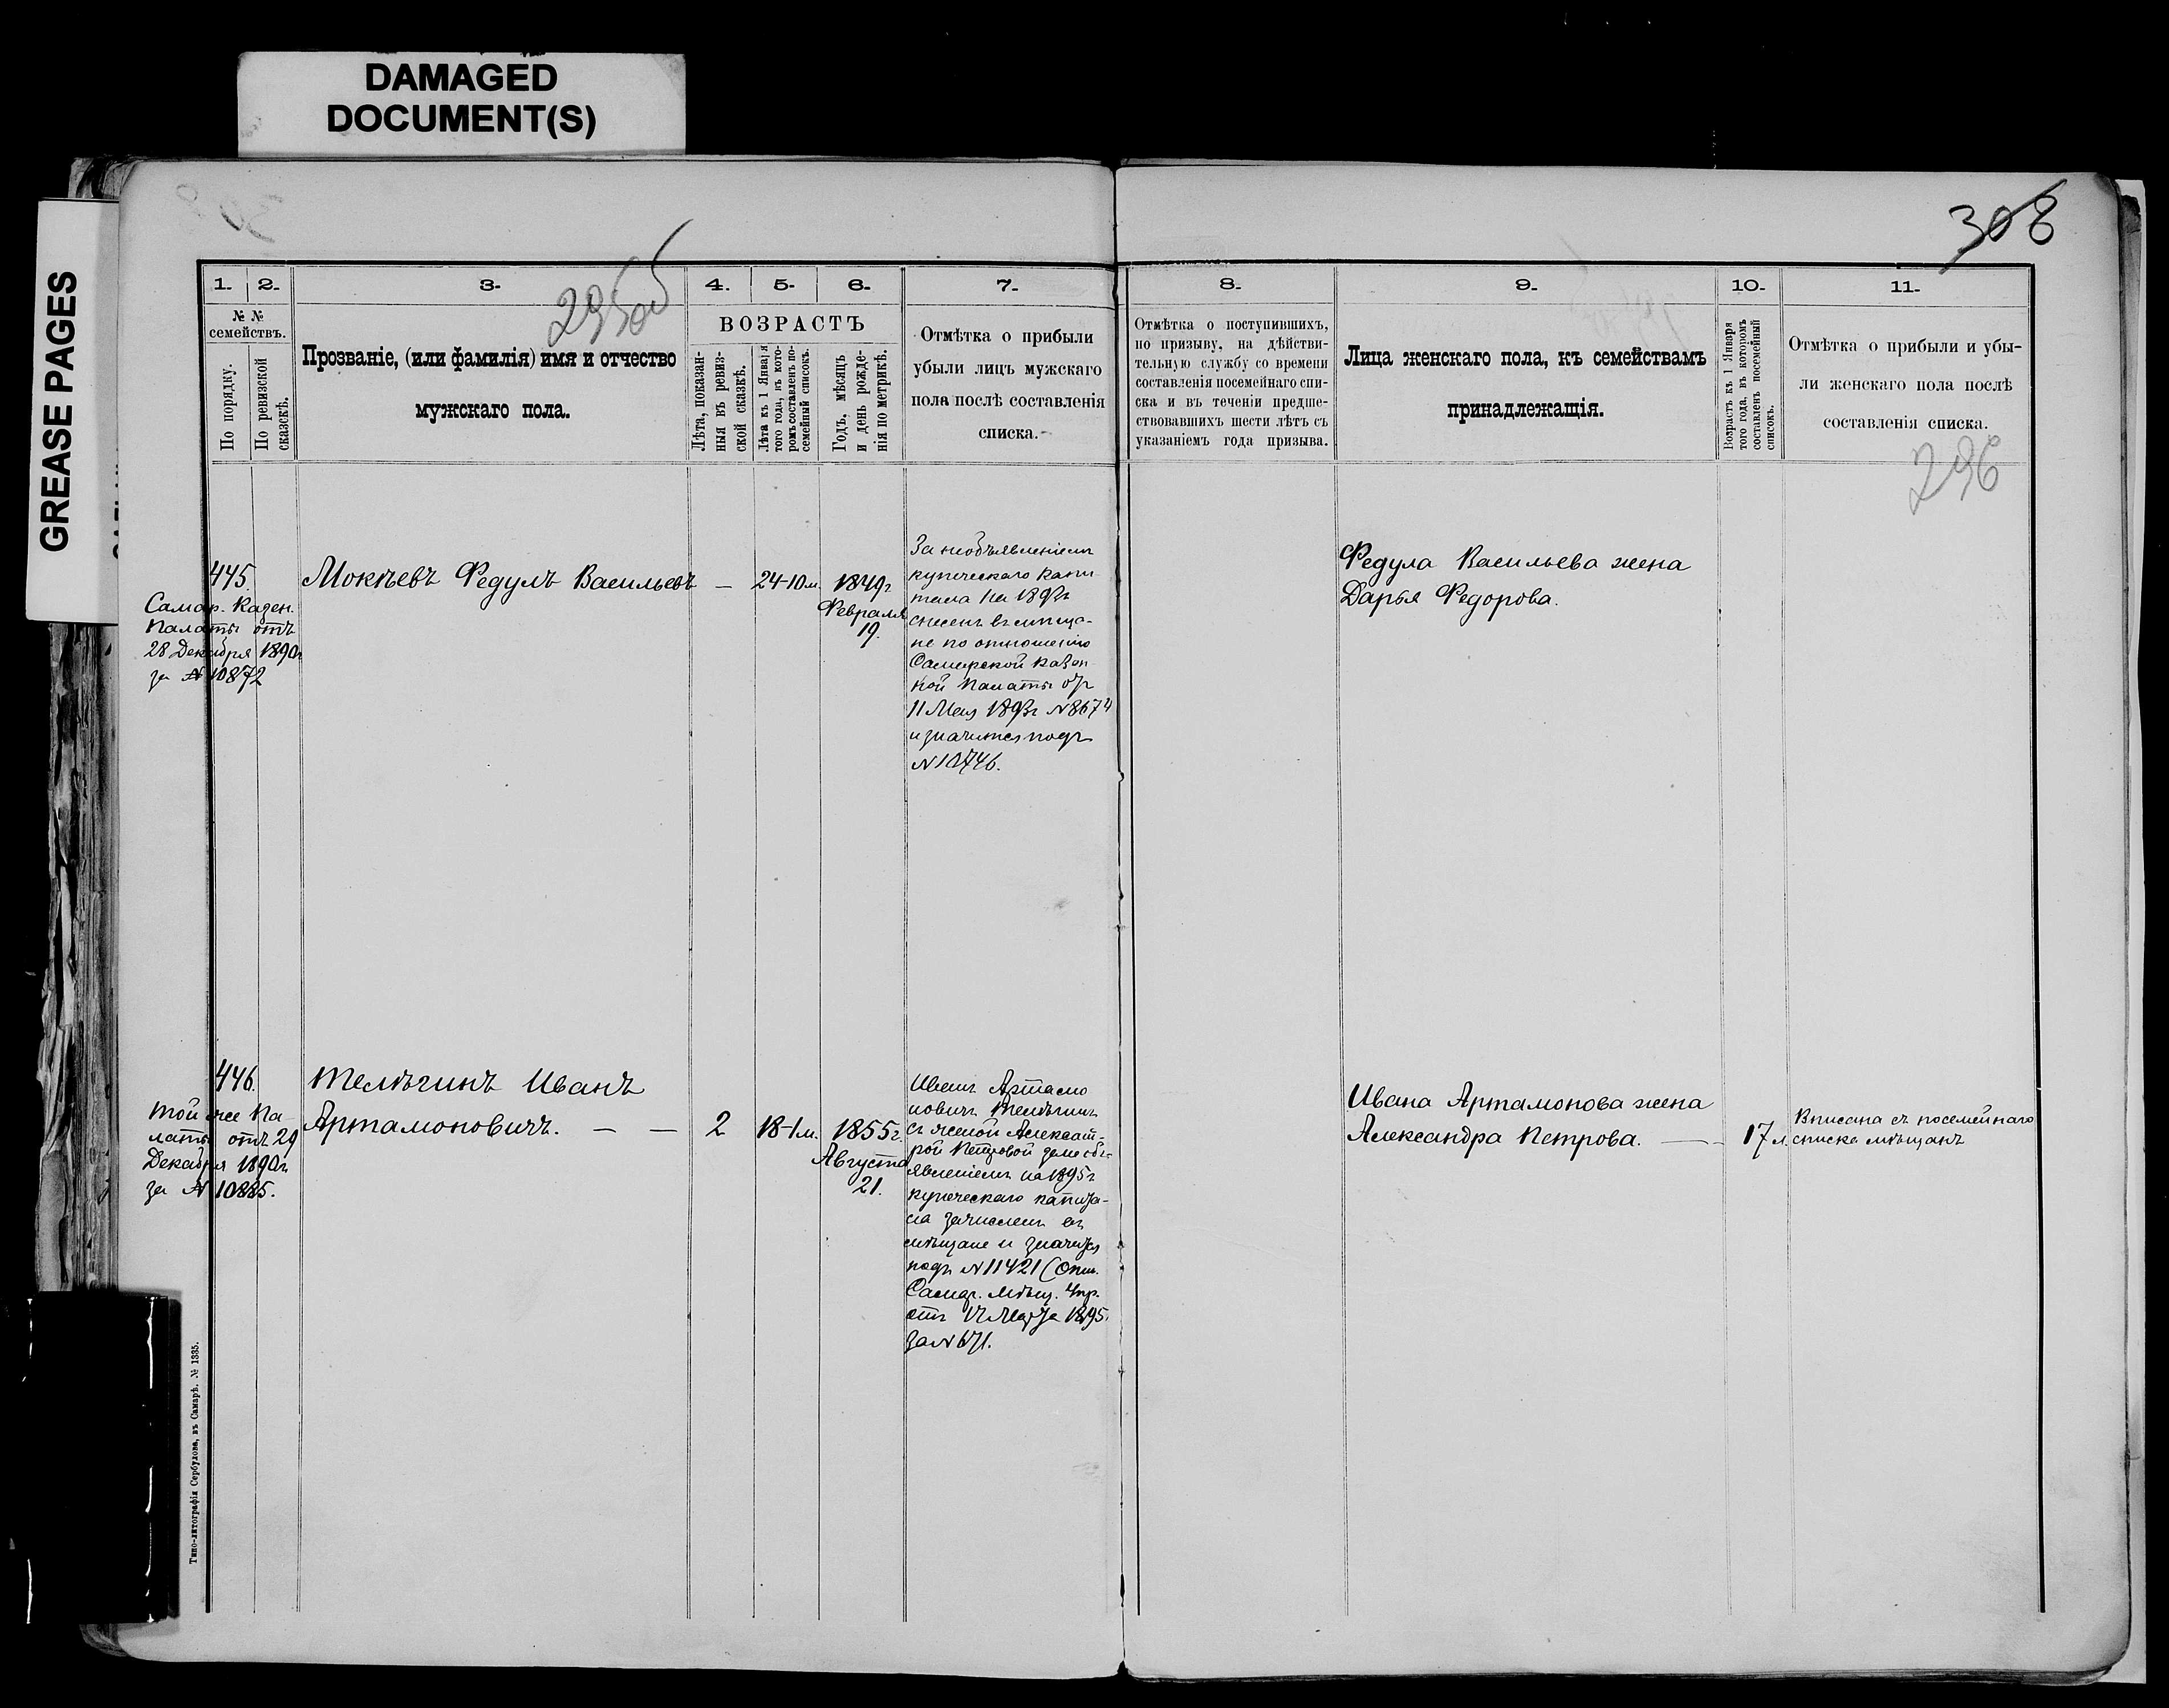 DAMAGED
DOCUMENT(S)
GREASE PAGES
308
295об
296
1.
2.
3.
4.
5.
6.
7.
8.
9.
10.
11.
№ №
семействъ.
По порядку.
По ревизской
сказкѣ.
Прозваніе, (или фамилія) имя и отчество
мужскаго пола.
ВОЗРАСТЪ
Лѣта, показан-
ныя въ ревиз-
ской сказкѣ.
Лѣта къ 1 Января
того года, въ кото-
ромъ составленъ по-
семейный списокъ.
Годъ, мѣсяцъ
и день рожде-
нія по метрикѣ.
Отмѣтка о прибыли
убыли лицъ мужскаго
пола послѣ составленія
списка.
Отмѣтка о поступившихъ,
по призыву, на дѣйстви-
тельную службу со времени
составленія посемейнаго спи-
ска и въ теченіи предше-
ствовавшихъ шести лѣтъ съ
указаніемъ года призыва.
Лица женскаго пола, къ семействамъ
принадлежащія.
Возрастъ къ 1 Января
того года, въ которомъ
составленъ посемейный
списокъ.
Отмѣтка о прибыли и убы-
ли женскаго пола послѣ
составленія списка.
445.
Самар. Казен.
Палаты отъ
28 Декабря 1890г
за № 10872
Мокѣевъ Федулъ Васильевъ —
24-10м.
1849г
Февраля
19.
За необъявленіемъ
купеческаго капи-
тала на 1893г
снесенъ въ мѣща-
не по отношенію
Самарской Казен
ной Палаты отъ
11 Мая 1893г №8674
и значится подъ
№10746.
Федула Васильева жена
Дарья Федорова.
446.
Той же Па-
латы отъ 29
Декабря 1890г
за № 10885.
Телѣгинъ Иванъ
Артамоновичъ. — —
2
18-1м.
1855г.
Августа
21.
Иванъ Артамо
новичъ Телѣгинъ
съ женой Александ-
рой Петровой
явленіемъ на 1895г
купеческаго капита-
ла зачисленъ въ
мѣщане и значится
подъ №11421 (Отн.
Самар. Мѣщ. Упр.
отъ Марта 1895г
за № 671.
Ивана Артамонова жена
Александра Петрова. —
17 л.
Вписана съ посемейнаго
списка мѣщанъ
Типо-литографія Сербулова, въ Самарѣ. № 1335.